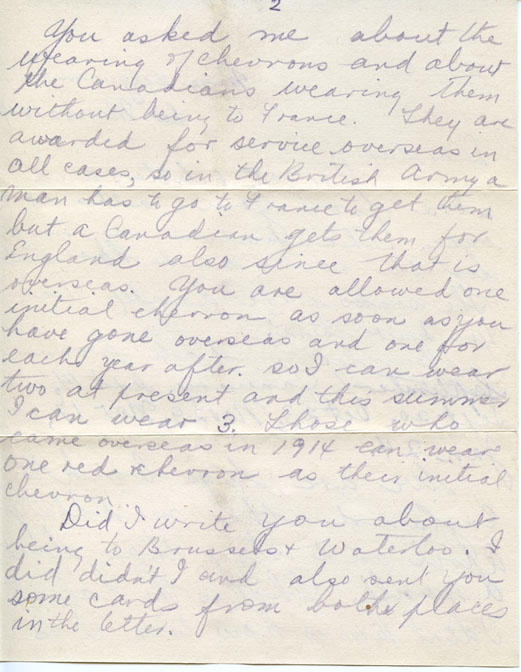 2
You asked me about the
wearing of chevrons and about
the Canadians wearing them
without being to France. They are
awarded for service overseas in
all cases, so in the British Army a
man has to go to France to get them
but a Canadian gets them for
England also since that is
overseas. You are allowed one
initial chevron as soon as you
have gone overseas and one for
each year after. so I can wear
two at present and this summer
I can wear 3. Those who
came overseas in 1914 can wear
one red chevron as their initial
chevron
Did I write you about
being to Brussels + Waterloo. I
did didn't I and also sent you
some cards from both places
in the letter.